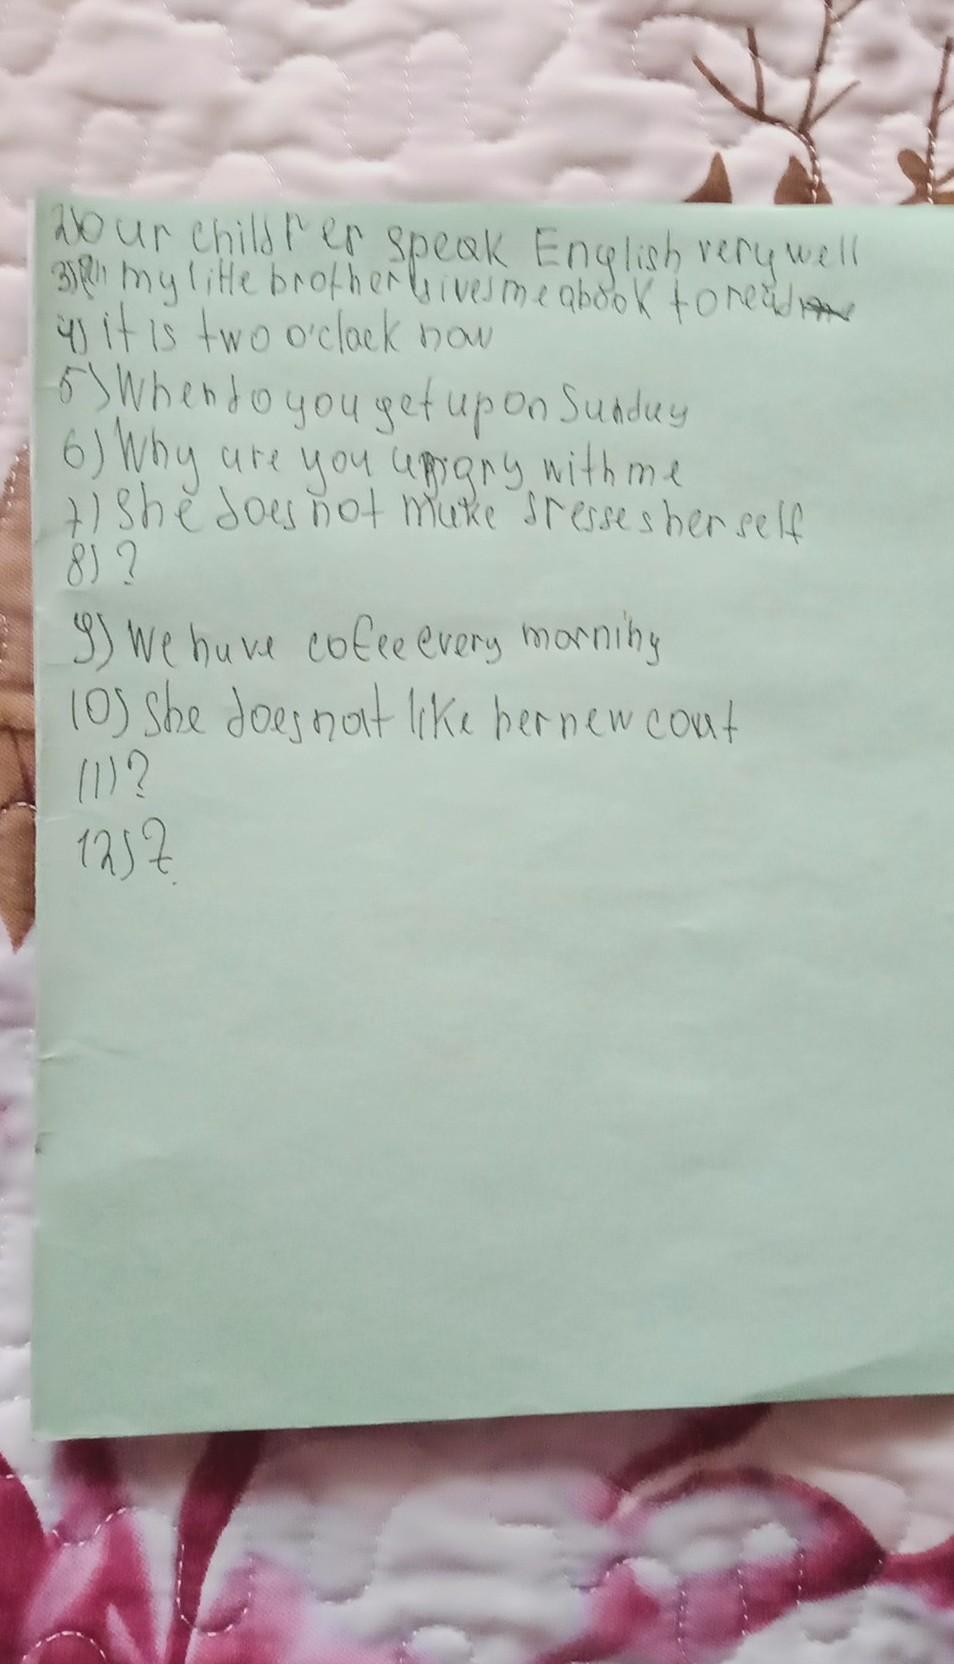 2) Our children speak English very well
3) my little brother gives me a book to read
4) it is two o'clock now
5) When do you get up on Sunday
6) Why are you angry with me
7) She does not make dresses herself
8) ?
9) We have cofee every morning
10) She does not like her new coat
11) ?
12) ?